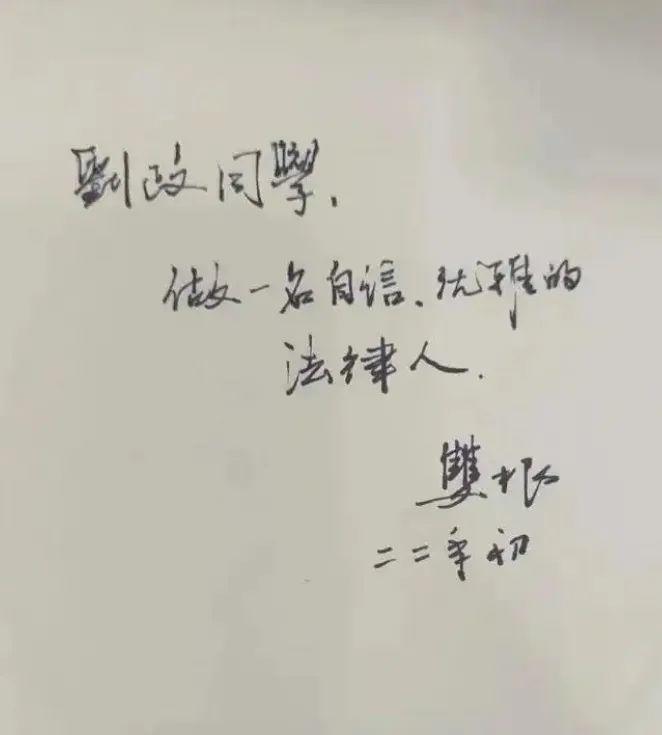 劉政同學，
做一名自信、优雅的
法律人.
雙根
二二年初